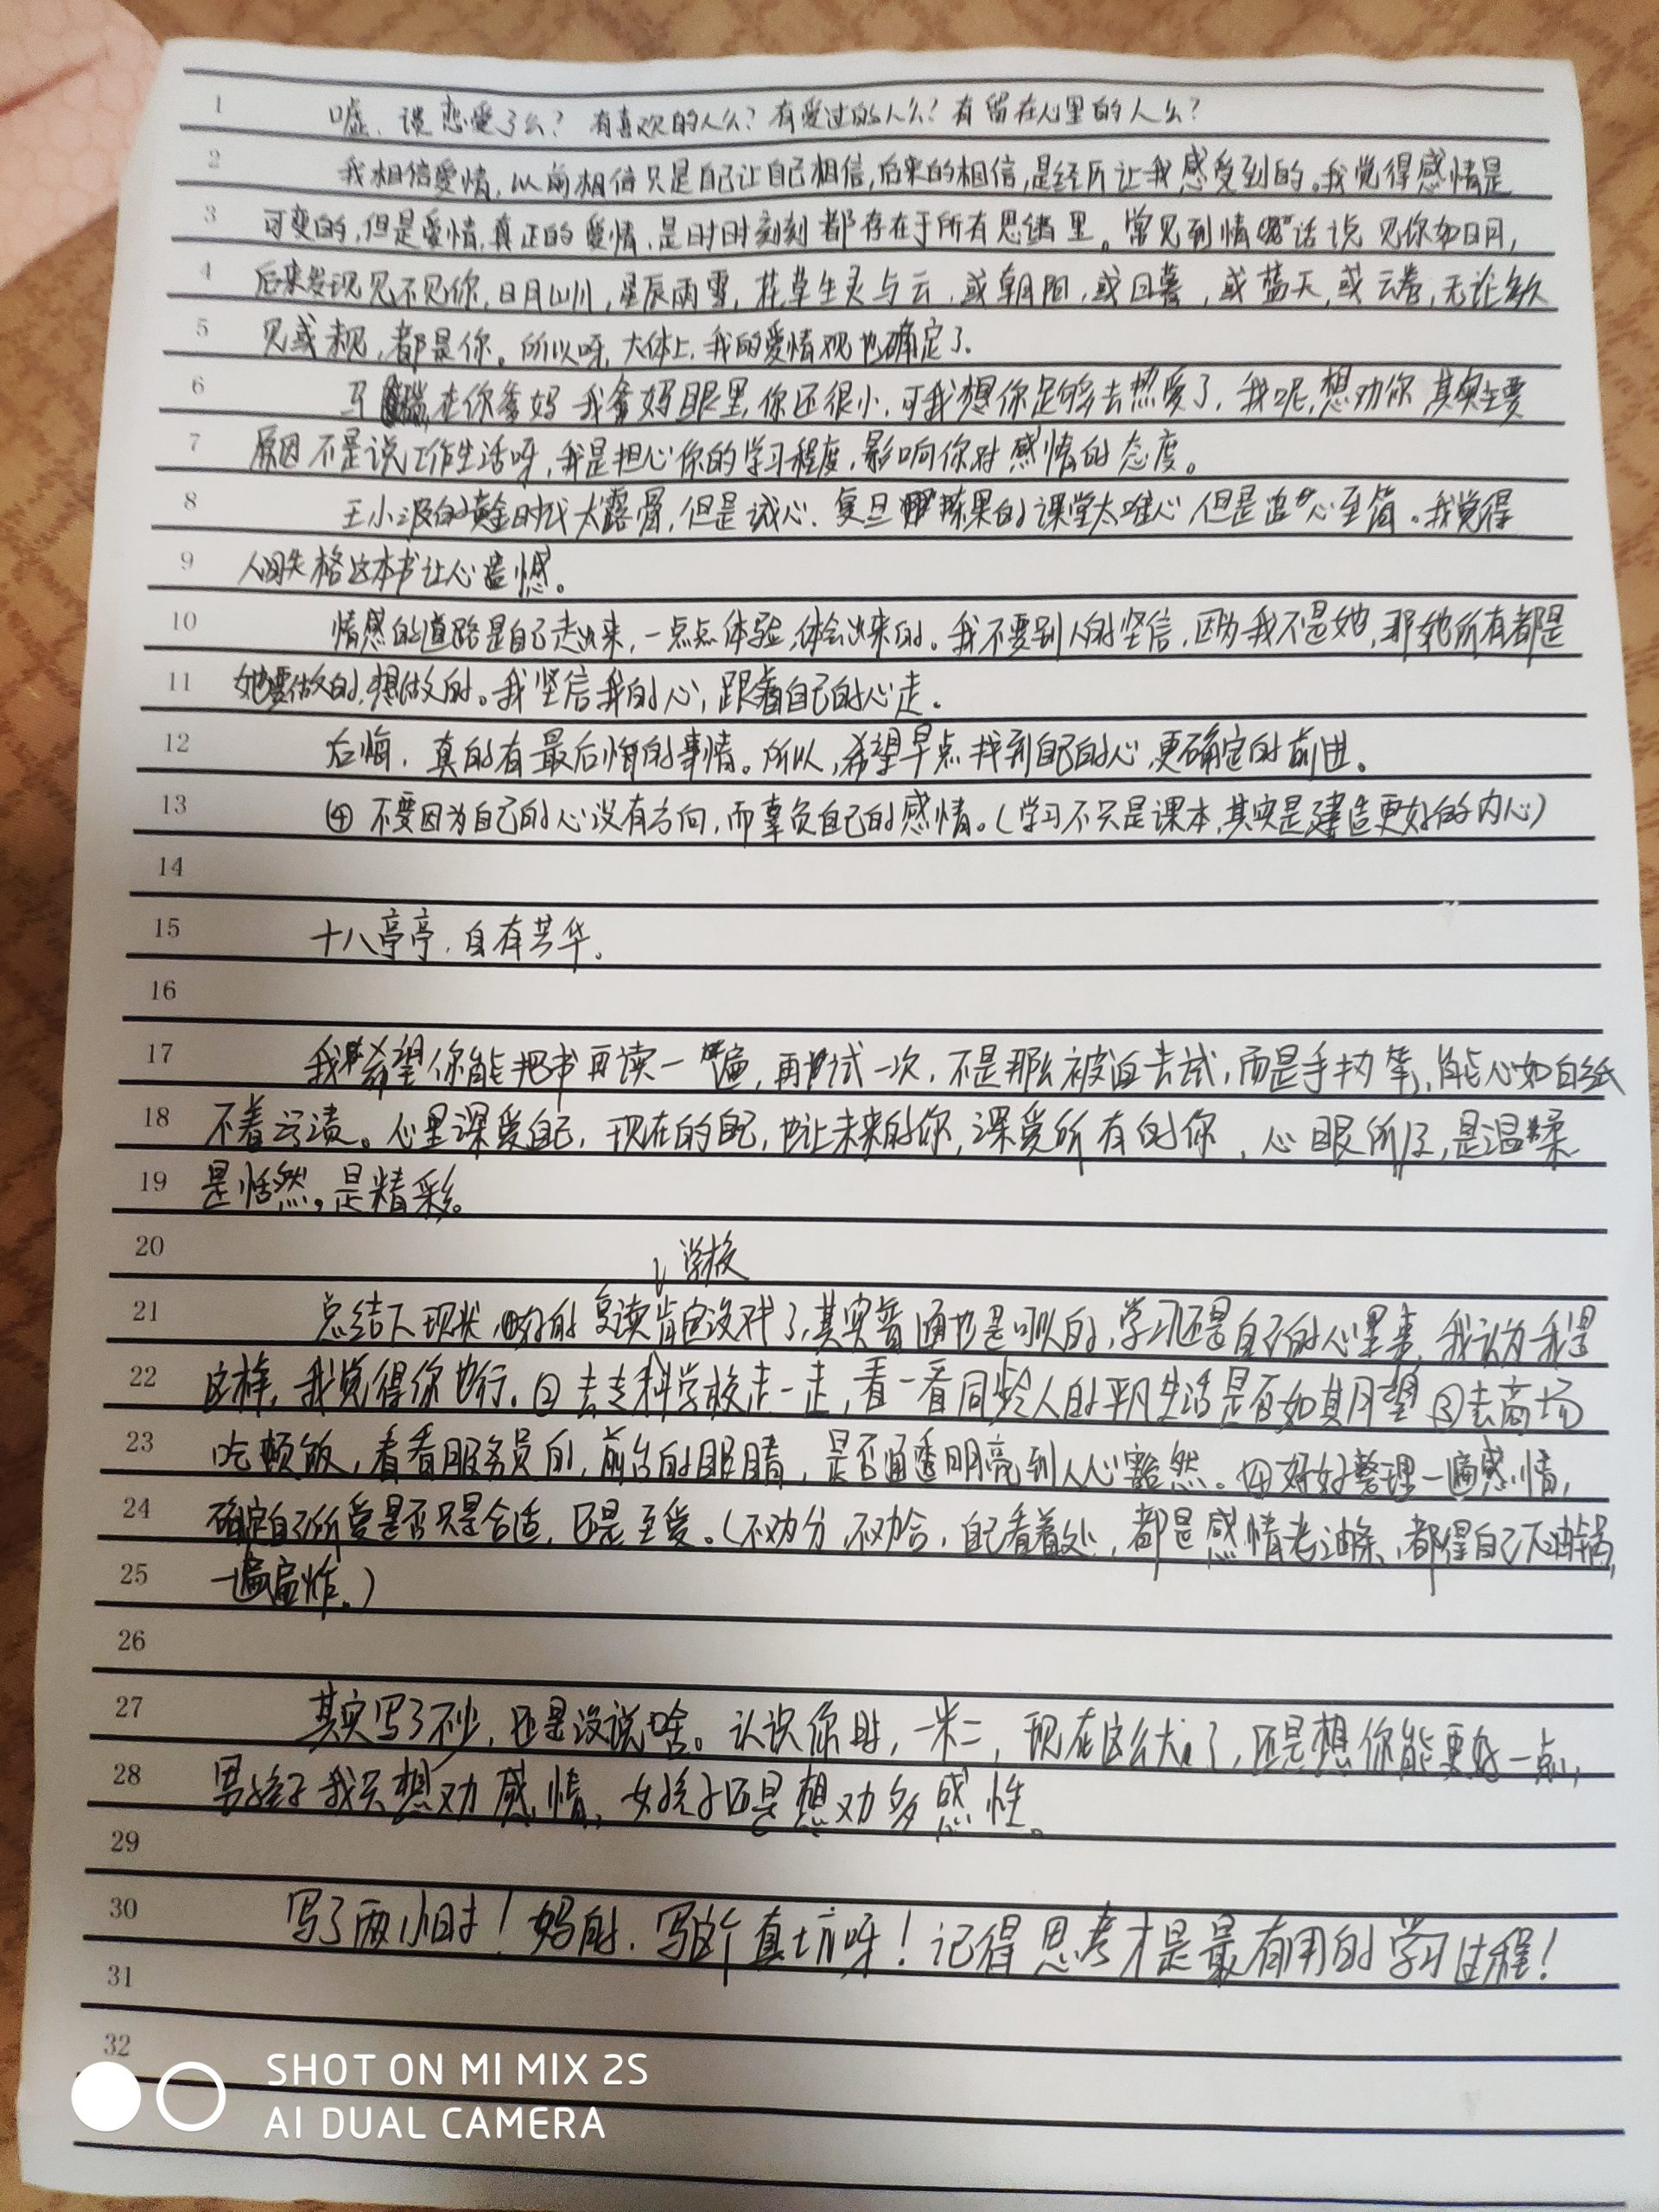 1 嘘、谈恋爱了么？有喜欢的人么？有爱过的人么？有留在心里的人么？
2 我相信爱情，以前相信只是自己让自己相信，后来的相信，是经历让我感受到的。我觉得感情是
3 可变的，但是爱情，真正的爱情，是时时刻刻都存在于所有思绪里。常见到情话说 见你如日月，
4 后来发现见不见你，日月山川，星辰雨雪，花草生灵与云，或朝阳，或日暮，或蓝天，或云卷，无论
5 见或未见，都是你。所以呀，大体上，我的爱情观也确定了。
6 在你爹妈 我爹妈眼里，你还很小，可我想你足够去热爱了，我呢，想劝你 其实主要
7 原因不是说工作生活呀，我是担心你的学习程度，影响你对感情的态度。
8 王小波的黄金时代太露骨，但是诚心、复旦陈果的课堂太唯心 但是追心至简。我觉得
9 人间失格这本书让心遗憾。
10 情感的道路是自己走出来，一点点体验，体会出来的。我不要别人的坚信，因为我不是她，那她所有都是
11 她要做的，想做的。我坚信我的心，跟着自己的心走。
12 后悔，真的有最后悔的事情。所以，希望早点找到自己的心，更确定的前进。
13 ④ 不要因为自己的心没有方向，而辜负自己的感情。（学习不只是课本，其实是建造更好的内心）
14
15 十八亭亭，自有芳华。
16
17 我希望你能把书再读一遍，再试一次，不是那么被迫去试，而是手执笔，能心如白纸
18 不着污渍。心里深爱自己，现在的自己，也让未来的你，深爱所有的你，心眼所及，是温柔
19 是恬然。是精彩。
20 学校
21 总结下现状，好的复读肯定没戏了，其实普通也是可以的，学习还是自己的心里事，我认为我是
22 这样，我觉得你也行。②去专科学校走一走，看一看同龄人的平凡生活是否如其所望 ③去商场
23 吃顿饭，看看服务员的，前台的眼睛，是否通透明亮到人心豁然。④好好整理一遍感情，
24 确定自己所爱是否只是合适，还是至爱。（不劝分，不劝合，自己看着处，都是感情老油条，都得自己下油锅，
25 一遍遍炸。）
26
27 其实写了不少，还是没说啥。认识你时，一米二，现在这么大了，还是想你能更好一点，
28 男孩子我只想劝感情，女孩子还是想劝多感性。
29
30 写了两小时！妈的，写这个真坑呀！记得思考才是最有用的学习过程！
31
32
SHOT ON MI MIX 2S
AI DUAL CAMERA